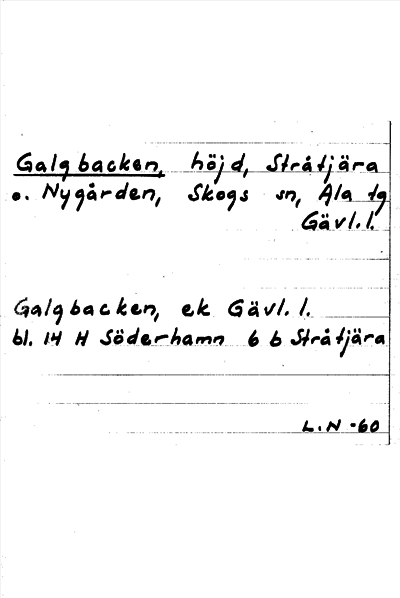 Galgbacken, höjd, Stråtjära
o. Nygården, Skogs sn, Ala tg
Gävl.l.
Galgbacken, ek Gävl.l.
bl. 14 H Söderhamn 6 b Stråtjära
L.N -60